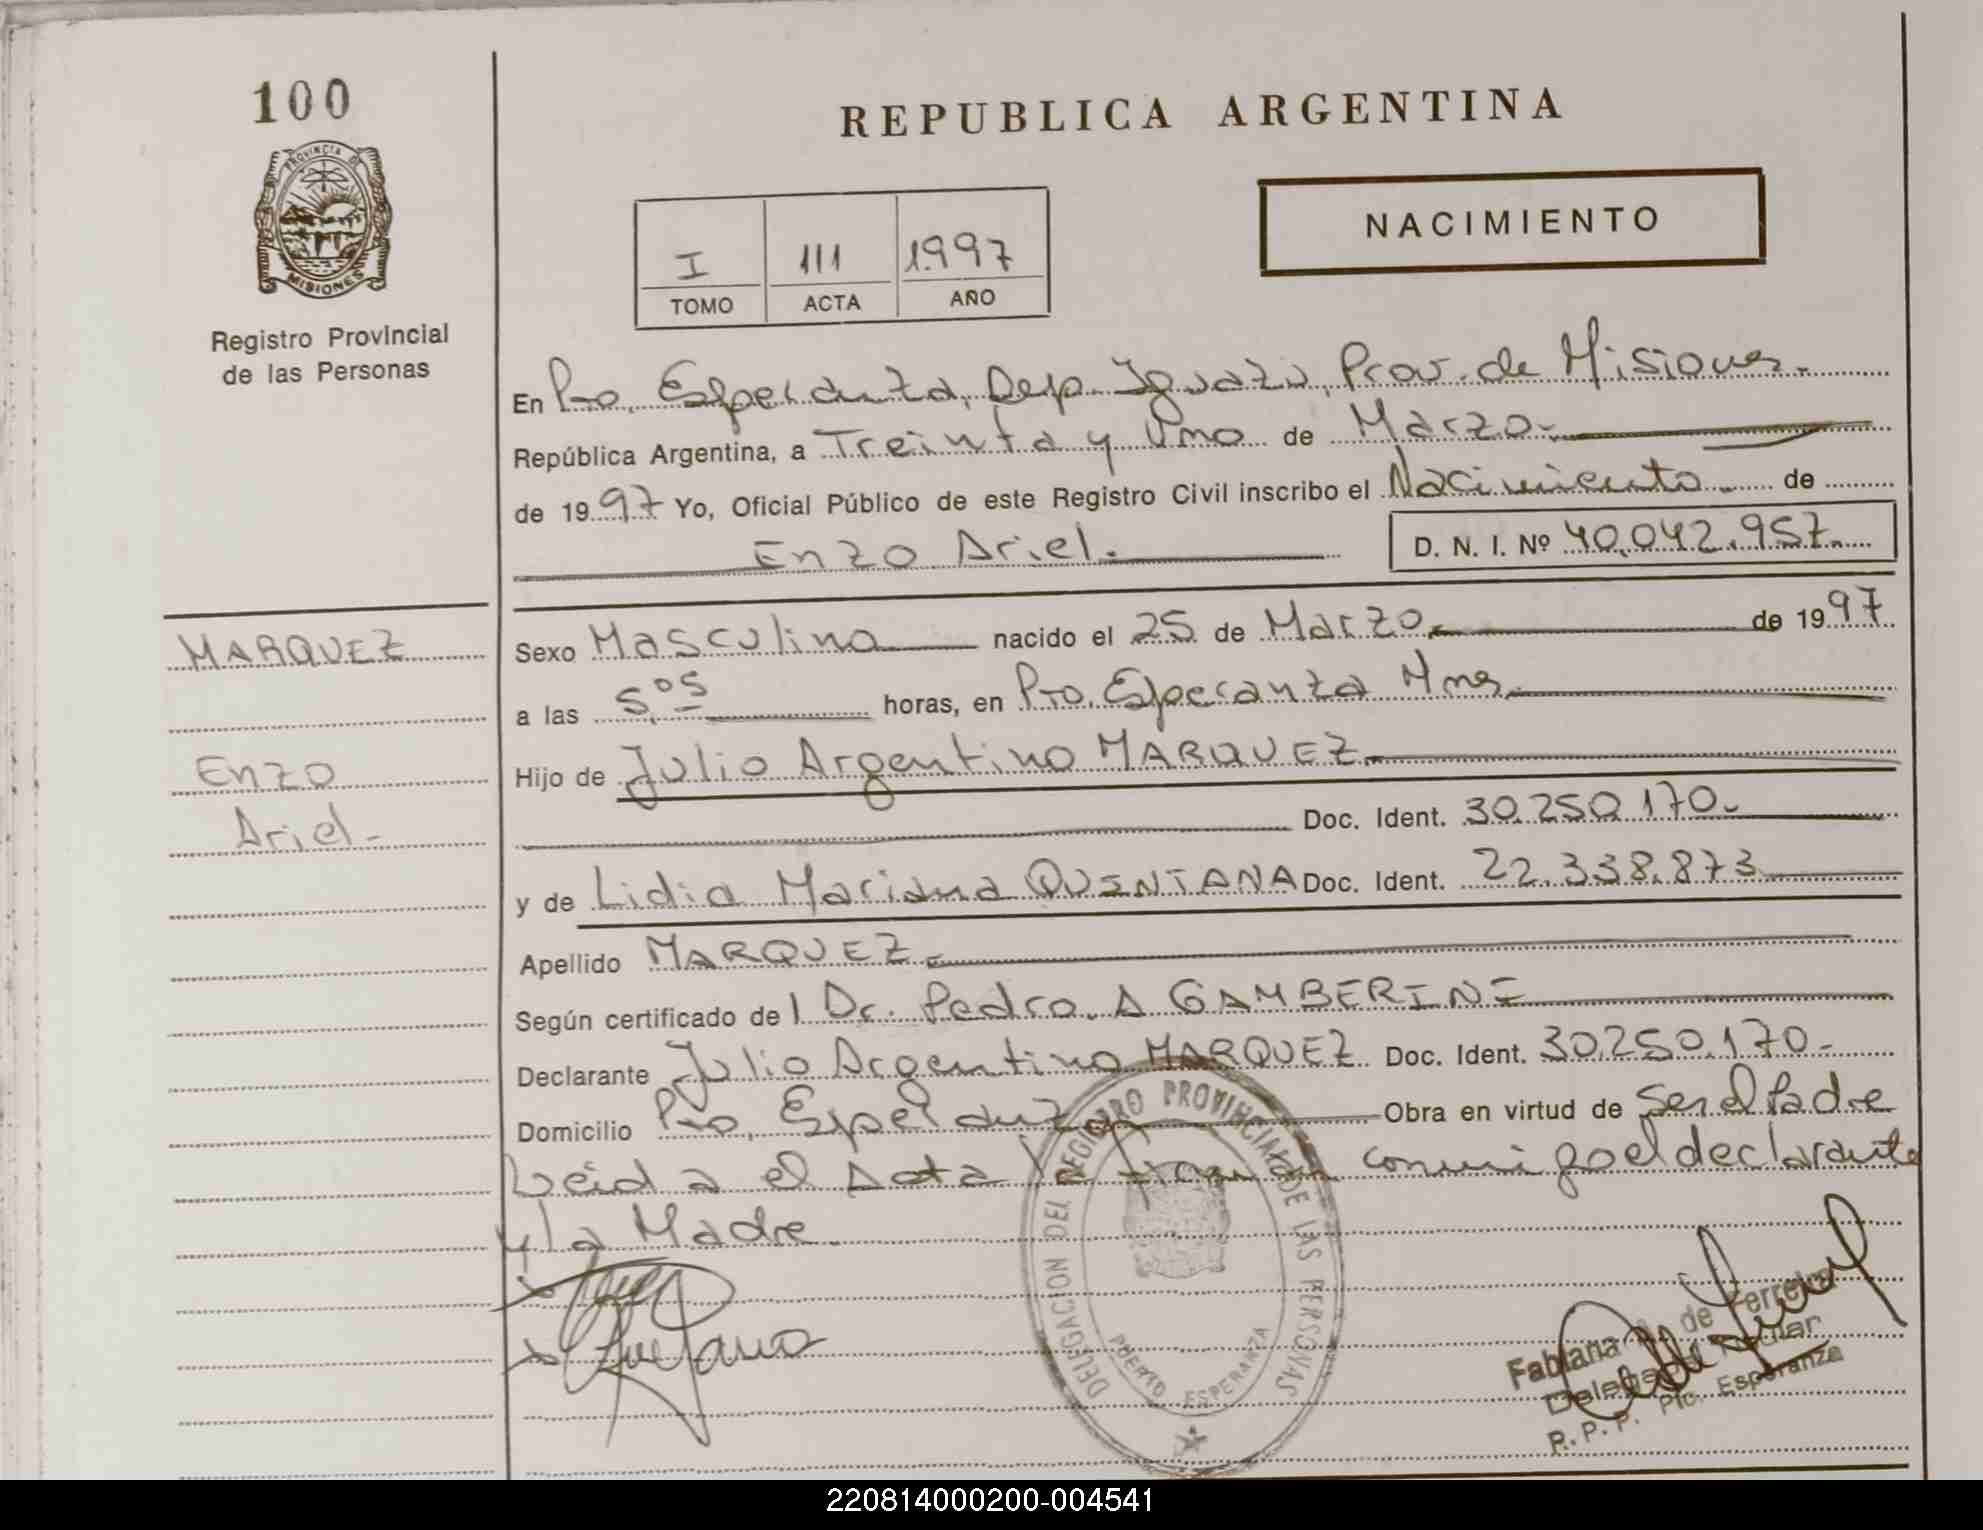 100
REPUBLICA ARGENTINA
PROVINCIA DE
MISIONES
Registro Provincial
de las Personas
NACIMIENTO
I 111 1997
TOMO ACTA AÑO
En Pto. Esperanza, Dep. Iguazú, Prov. de Misiones.
República Argentina, a Treinta y Uno de Marzo
de 1997 Yo, Oficial Público de este Registro Civil inscribo el Nacimiento de
Enzo Ariel. D. N. I. Nº 40.042.957
MARQUEZ
Enzo
Ariel-
Sexo Masculino nacido el 25 de Marzo de 1997
a las 5,05 horas, en Pto. Esperanza Mnes.
Hijo de Julio Argentino MARQUEZ
Doc. Ident. 30.250.170-
y de Lidia Mariana QUINTANA Doc. Ident. 22.338.873
Apellido MARQUEZ
Según certificado del Dr. Pedro. A GAMBERINI
Declarante Julio Argentino MARQUEZ Doc. Ident. 30.250.170-
Domicilio Pto. Esperanza Obra en virtud de Ser el Padre
Leida el Acta la firman conmigo el declarante
y la Madre.
DELEGACION DEL REGISTRO PROVINCIAL DE LAS PERSONAS
PUERTO ESPERANZA
Fabiana de Ferreira
Delegada Titular
R.P.P. Pto. Esperanza
220814000200-004541